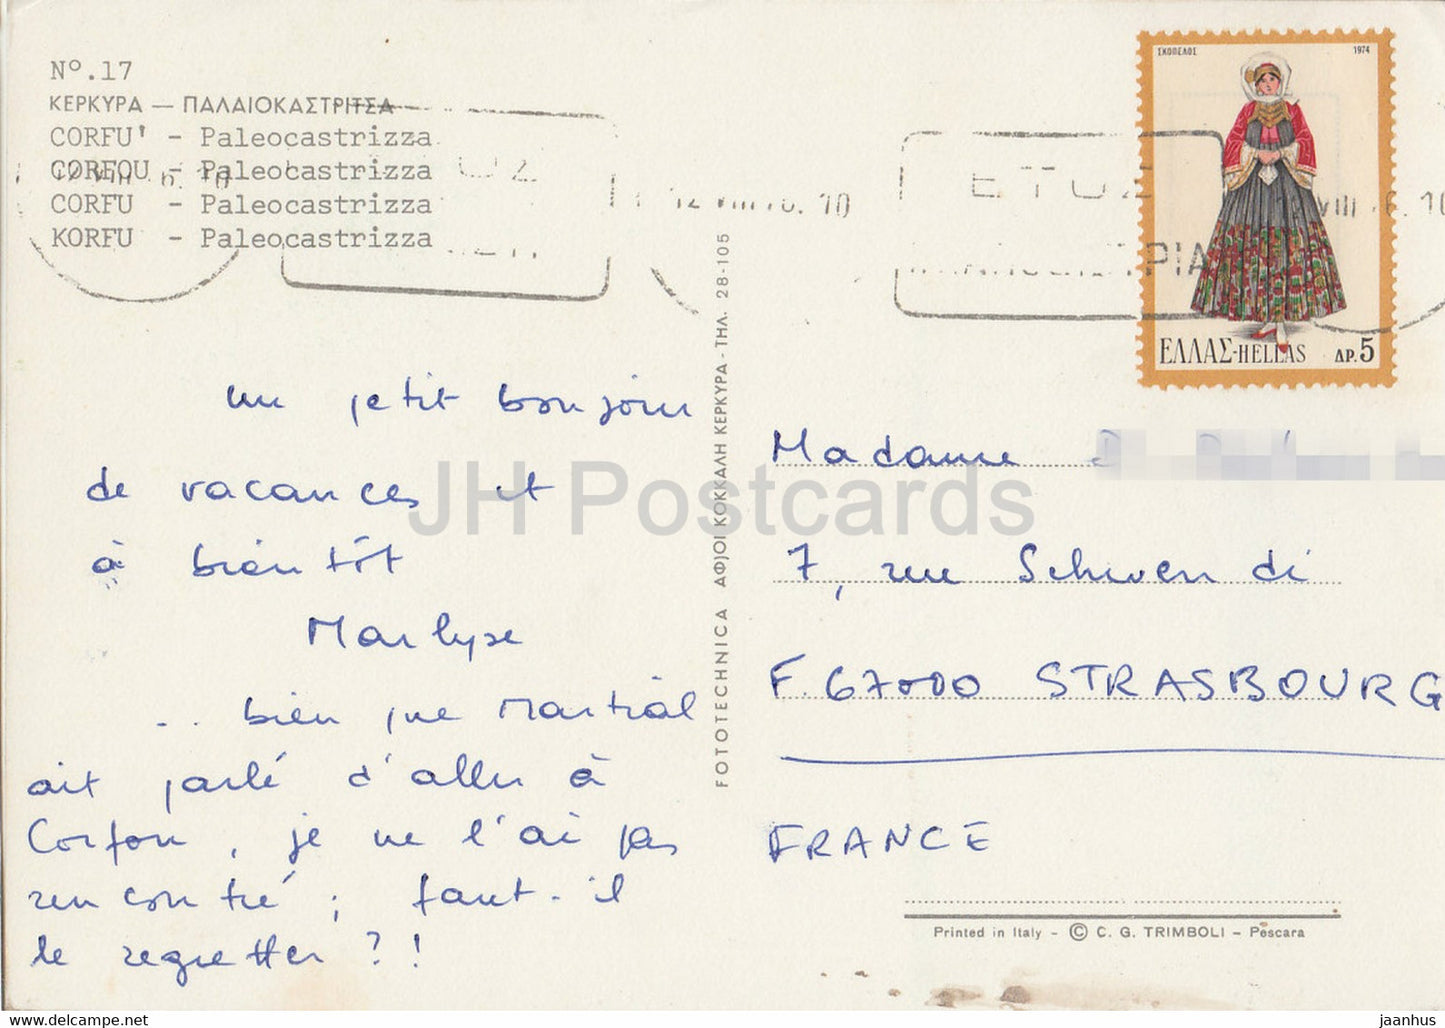 Nº.17
ΚΕΡΚΥΡΑ — ΠΑΛΑΙΟΚΑΣΤΡΙΤΣΑ
CORFU' - Paleocastrizza
CORFOU - Paleocastrizza
CORFU - Paleocastrizza
KORFU - Paleocastrizza
un petit bonjour
de vacances et
à bientôt
Marlyse
.. bien que Martial
ait parlé d'aller à
Corfou, je ne l'ai pas
rencontré ; faut-il
le regretter ?!
FOTOTECHNICA ΑΦ)ΟΙ ΚΟΚΚΑΛΗ ΚΕΡΚΥΡΑ - ΤΗΛ. 28-105
ΣΚΟΠΕΛΟΣ 1974
ΕΛΛΑΣ-HELLAS ΔΡ.5
12 VIII 76. 10
ΕΤΟΣ
Madame
7, rue Schwendi
F. 67000 STRASBOURG
FRANCE
Printed in Italy - © C. G. TRIMBOLI - Pescara
JH Postcards
www.delcampe.net
jaanhus